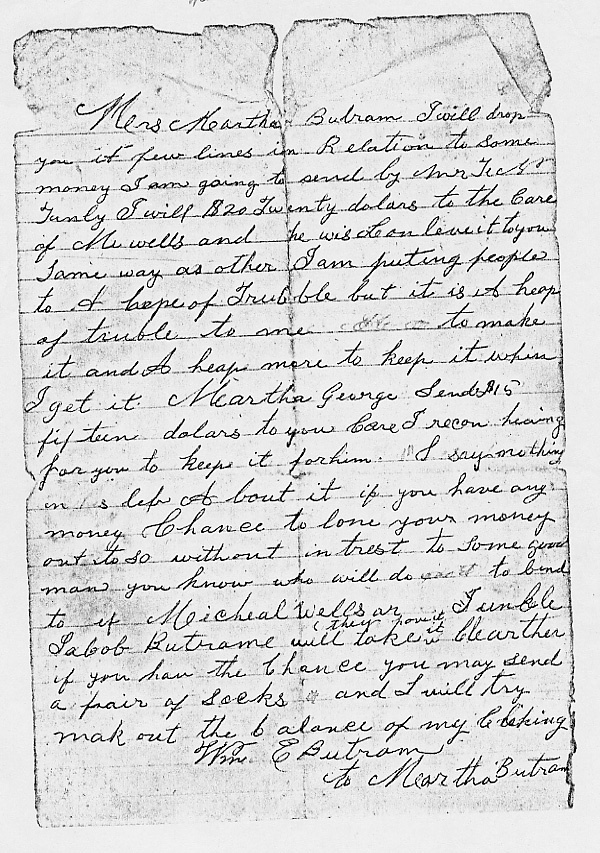 Mrs Martha Butram I will drop
you it few lines in Relation to some
money I am going to send by Mr
Tunly I will $20 Twenty dolars to the Care
of M wells and he wis leve it to you
Same way as other I am puting people
to A hepe of Trubble but it is A heap
of truble to me to make
it and A heap more to keep it when
I get it Martha George Send $15
fifteen dolars to you Care I recon
for you to keep it for him I say nothing
A bout it if you have any
money Chance to lone your money
out to so without intrest to Some good
man you know who will do to bind
to if Micheal Wells ar
they have it
Jabob Butrame will take it
if you hav the Chance you may send
a pair of Socks and I will try
mak out the balance of my
Wm E Butram
to Martha Butram